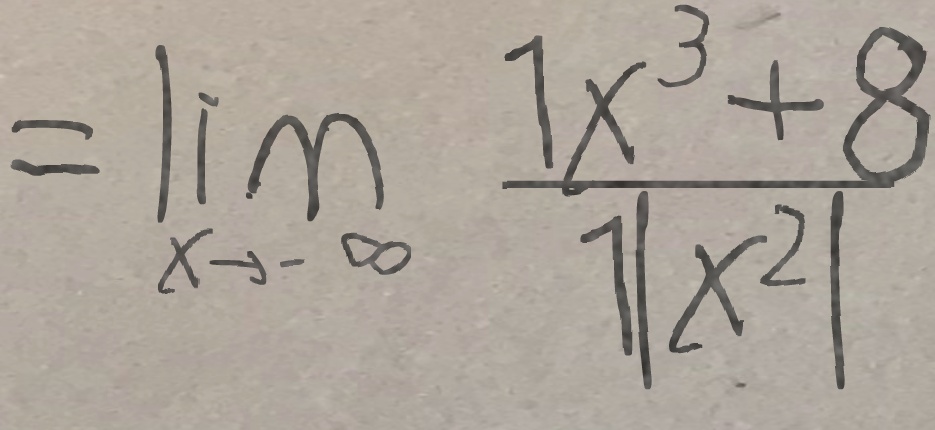 = lim x→-∞ (1x³ + 8) / (1|x²|)